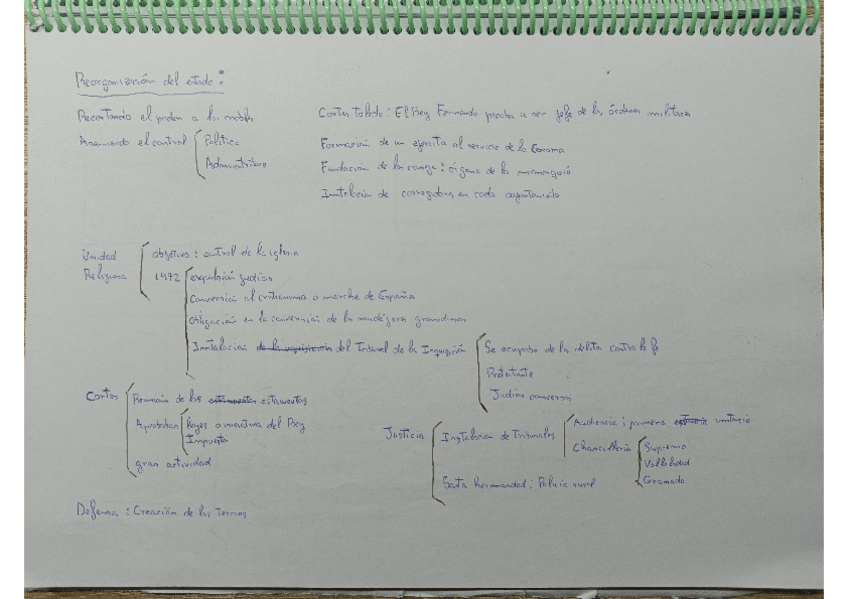 Reorganización del estado:
Recortando el poder a los nobles
Asumiendo el control Político
Administrativo
Cortes Toledo: El Rey Fernando pasaba a ser jefe de las órdenes militares
Formación de un ejército al servicio de la Corona
Fundación de los consejos: órganos de la monarquía
Instalación de corregidores en cada ayuntamiento
Unidad Religiosa
objetivo: control de la iglesia
1492 expulsión judíos
Conversión al cristianismo o marcha de España
Obligación en la conversión de los mudéjares granadinos
Instalación del Tribunal de la Inquisición
Se ocupaba de los delitos contra la fe
Protestante
Judíos conversos
Cortes
Reunión de los estamentos
Aprobaban leyes o iniciativa del Rey
Impuesto
gran actividad
Justicia
Instalaron de Tribunales
Audiencia: primera instancia
Chancillería
Supremo
Valladolid
Granada
Santa hermandad: Policía rural
Defensa: Creación de los tercios